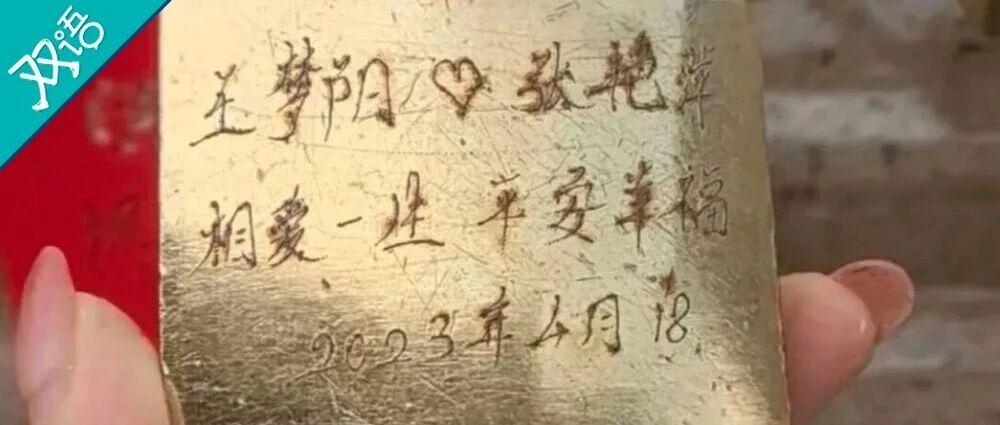 双语
王梦阳♡张艳萍
相爱一生 平安幸福
2023年4月18